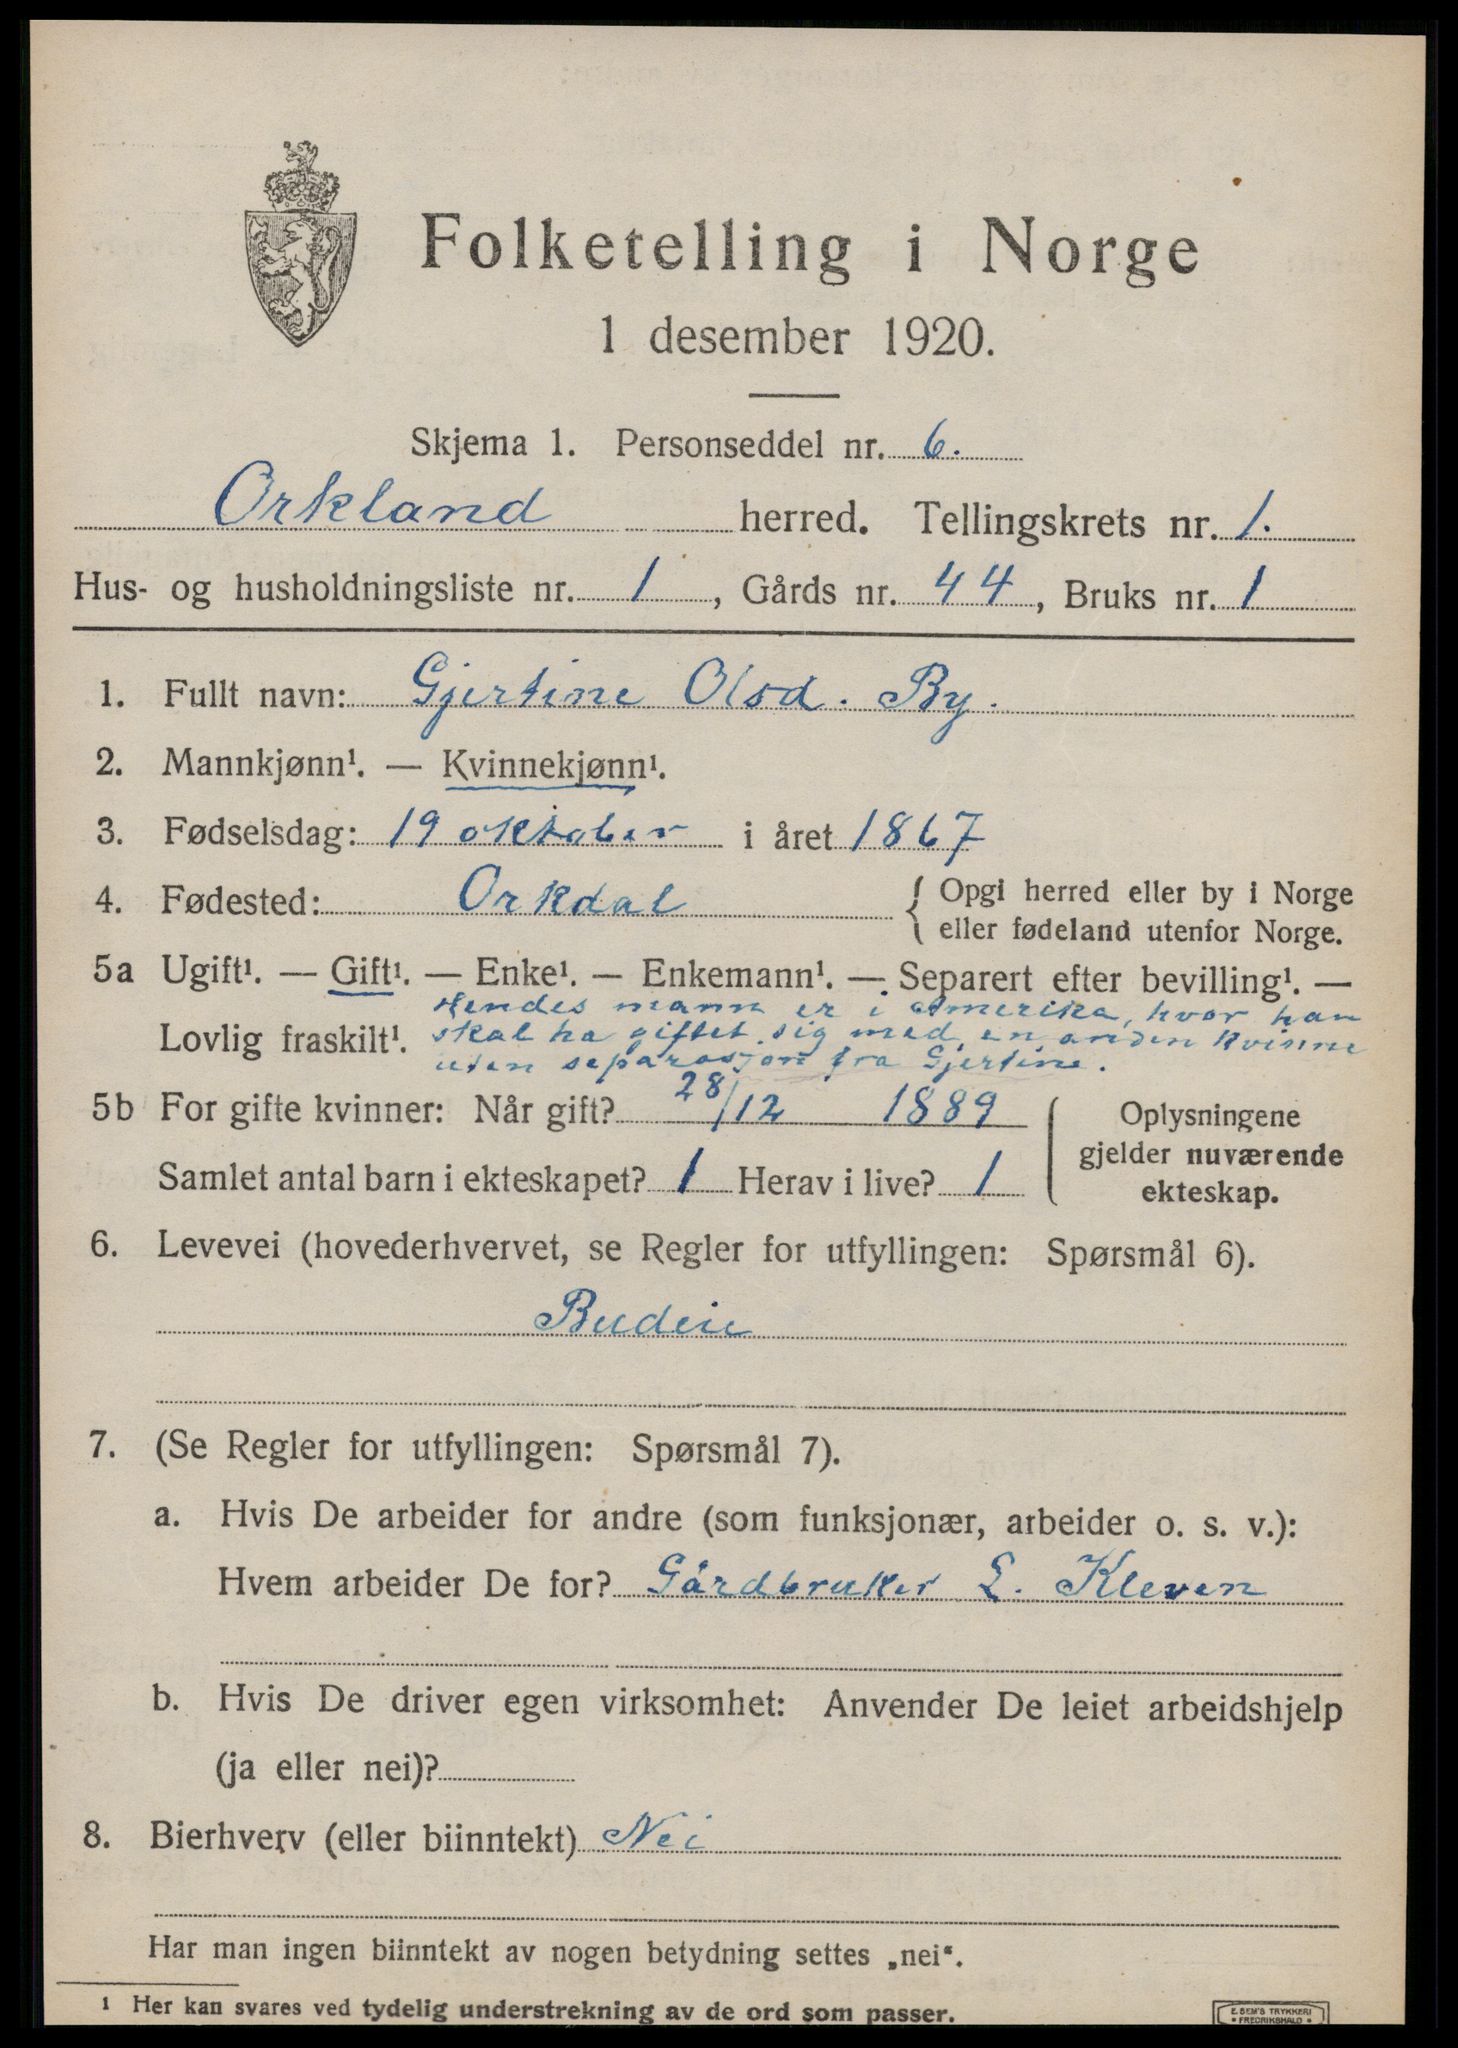 Folketelling i Norge
1 desember 1920.
Skjema 1. Personseddel nr. 6.
Orkland herred. Tellingskrets nr. 1.
Hus- og husholdningsliste nr. 1, Gårds nr. 44, Bruks nr. 1
1. Fullt navn: Gjertine Olsd. By.
2. Mannkjønn¹. — Kvinnekjønn¹.
3. Fødselsdag: 19 oktober i året 1867
4. Fødested: Orkdal { Opgi herred eller by i Norge
eller fødeland utenfor Norge.
5a Ugift¹. — Gift¹. — Enke¹. — Enkemann¹. — Separert efter bevilling¹. —
Hendes mann er i Amerika, hvor han
Lovlig fraskilt¹. skal ha giftet sig med en anden kvinne
uten separasjon fra Gjertine.
5b For gifte kvinner: Når gift? 28/12 1889 { Oplysningene
gjelder nuværende
Samlet antal barn i ekteskapet? 1 Herav i live? 1
ekteskap.
6. Levevei (hovederhvervet, se Regler for utfyllingen: Spørsmål 6).
Budeie
7. (Se Regler for utfyllingen: Spørsmål 7).
a. Hvis De arbeider for andre (som funksjonær, arbeider o. s. v.):
Hvem arbeider De for? Gårdbruker E. Kleven
b. Hvis De driver egen virksomhet: Anvender De leiet arbeidshjelp
(ja eller nei)?
8. Bierhverv (eller biinntekt) Nei
Har man ingen biinntekt av nogen betydning settes „nei“.
1 Her kan svares ved tydelig understrekning av de ord som passer.
E. SEM'S TRYKKERI
• FREDRIKSHALD •